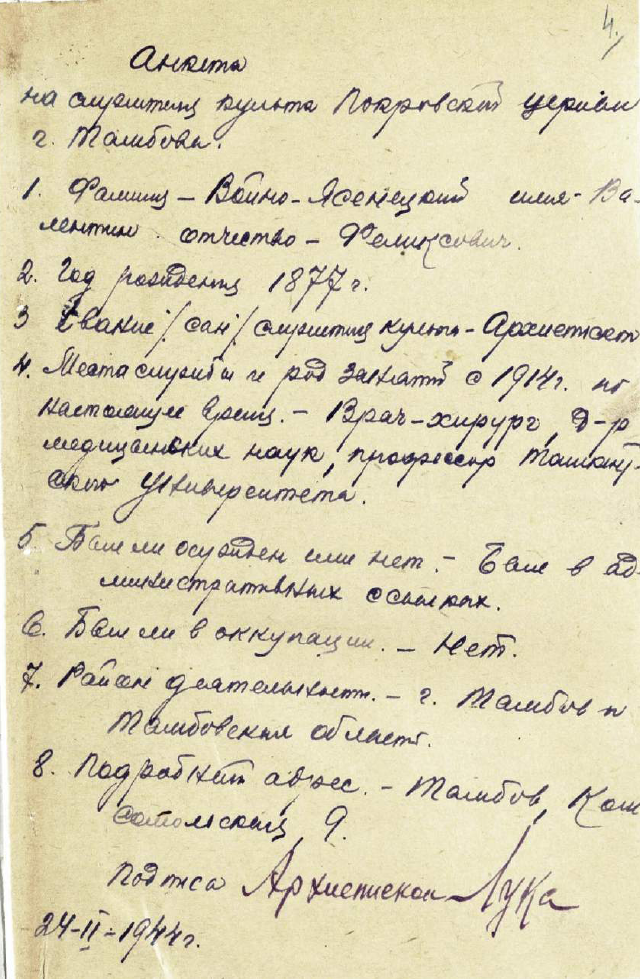 4.
Анкета
на служителя культа Покровской церкви
г. Тамбова.
1. Фамилия – Войно-Ясенецкий имя – Ва-
лентин отчество – Феликсович.
2. Год рождения 1877 г.
3 Звание /сан/ служителя культа – Архиепископ
4. Места службы и род занятий с 1914 г. по
настоящее время. – Врач-хирург, д-р
медицинских наук, профессор Ташкент-
ского Университета.
5 Был ли осужден или нет. – Был в ад-
министративных ссылках.
6. Был ли в оккупации. – Нет.
7. Район деятельности. – г. Тамбов и
Тамбовская область.
8. Подробный адрес. – Тамбов, Ком
сомольская, 9.
Подпись Архиепископ Лука
24-II-1944 г.